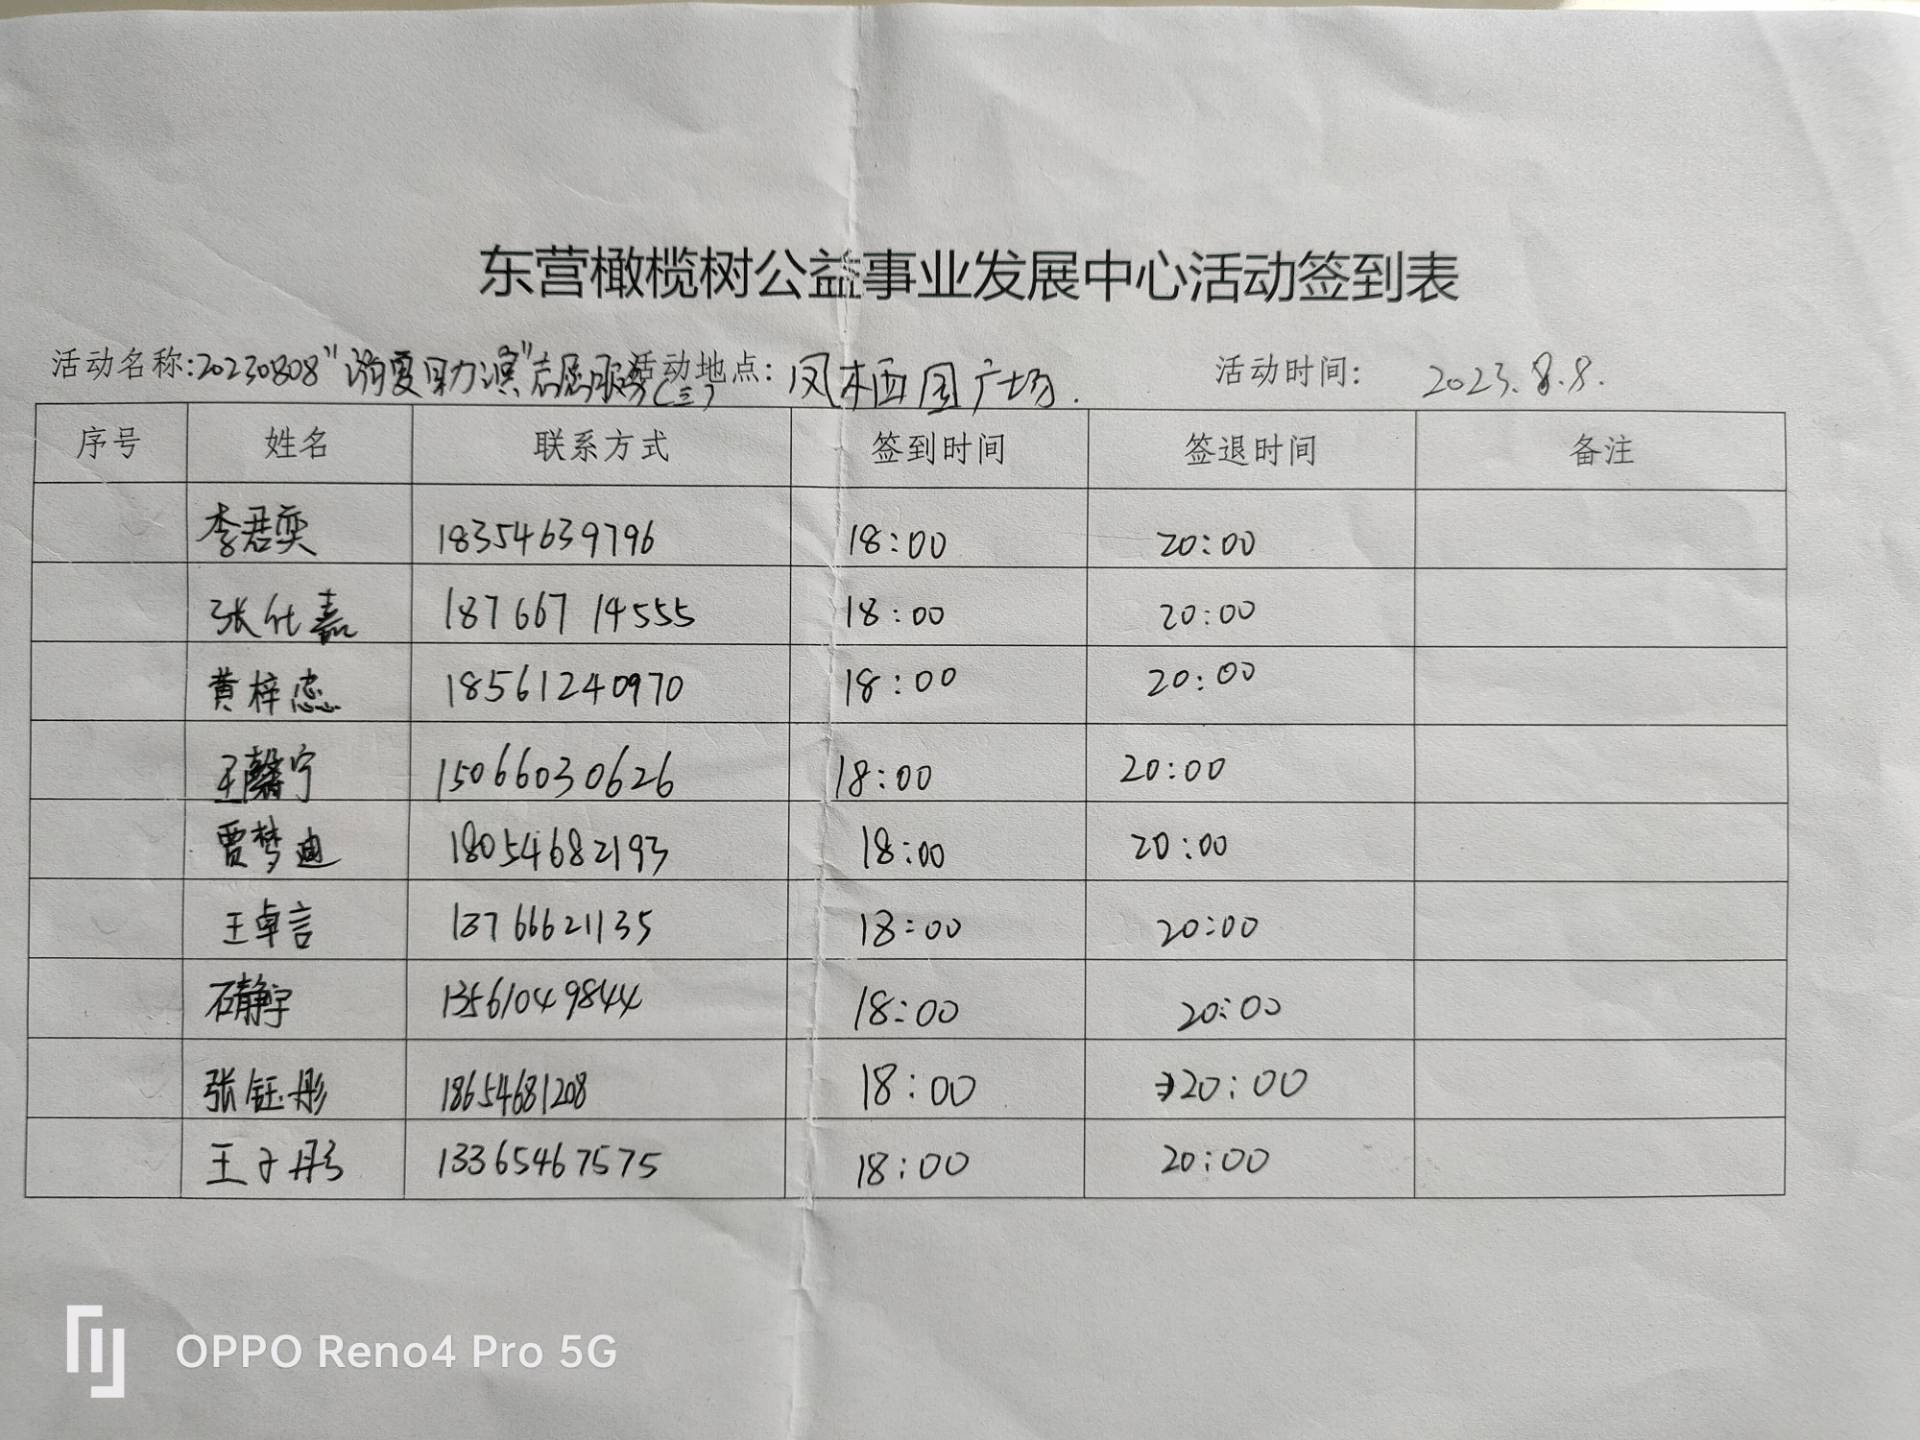 东营橄榄树公益事业发展中心活动签到表
活动名称:20230808"消夏日力演"志愿服务(三) 活动地点: 凤栖园广场. 活动时间: 2023.8.8.
序号 姓名 联系方式 签到时间 签退时间 备注
李君奕 18354639796 18:00 20:00
张仕嘉 18766714555 18:00 20:00
黄梓恋 18561240970 18:00 20:00
王馨宁 15066030626 18:00 20:00
贾梦迪 18054682193 18:00 20:00
王卓言 13766621135 18:00 20:00
石静宇 13561049844 18:00 20:00
张钰彤 18654681208 18:00 20:00
王子彤 13365467575 18:00 20:00
OPPO Reno4 Pro 5G